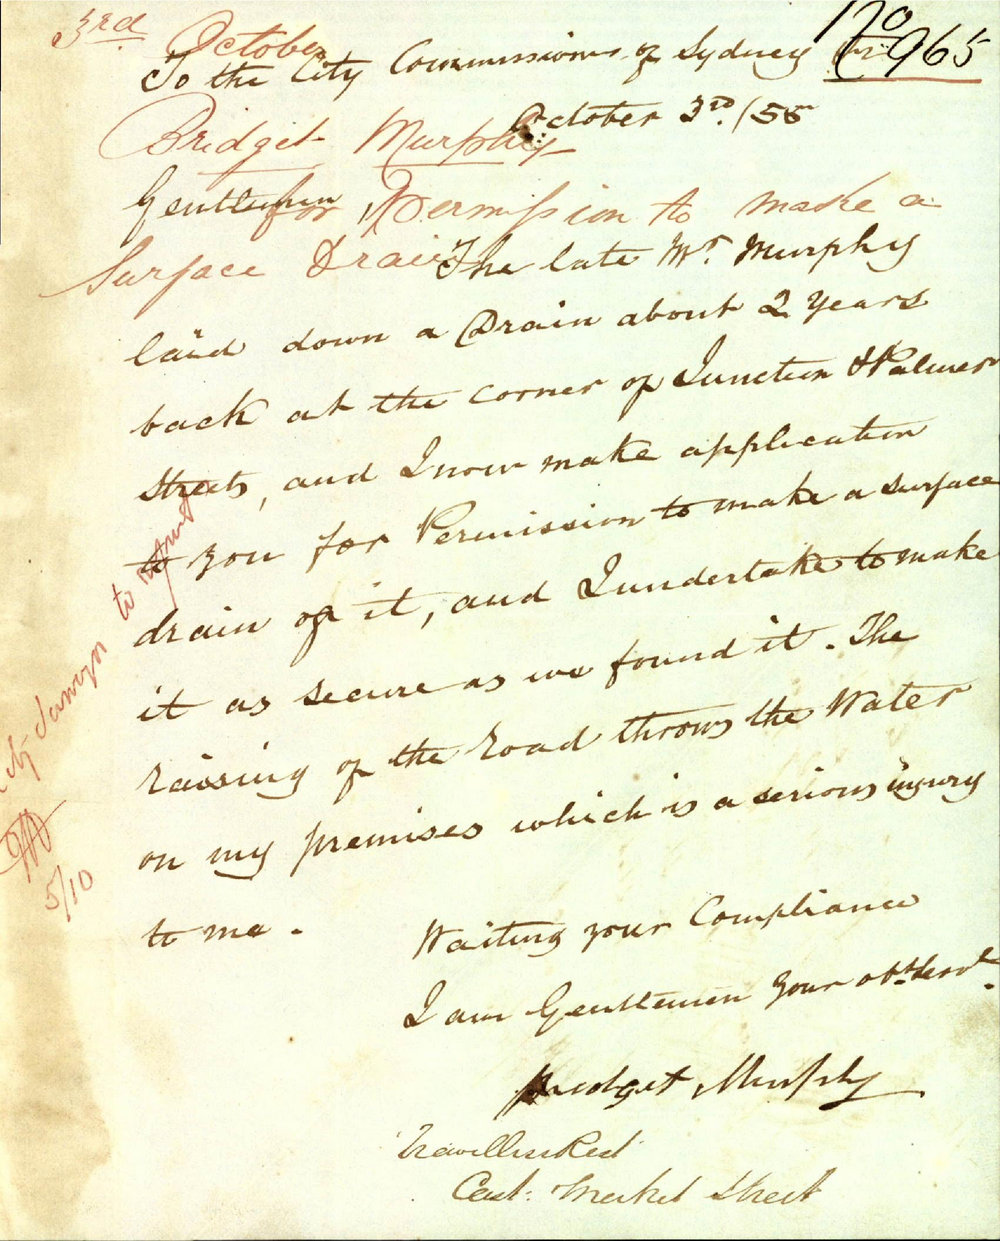 3rd October
No 965
To the City Commissioners of Sydney
October 3rd /55
Bridget Murphy
Gentlemen,
for Permission to make a
Surface Drain
The late Mr. Murphy
laid down a Drain about 2 Years
back at the corner of Junction & Palmer
Streets, and I now make application
to you for Permission to make a surface
drain of it, and I undertake to make
it as secure as we found it. The
raising of the Road throws the Water
on my premises which is a serious injury
to me.
Waiting your Compliance
I am Gentlemen your obt. Servt.
Bridget Murphy
Market Street
to report
5/10